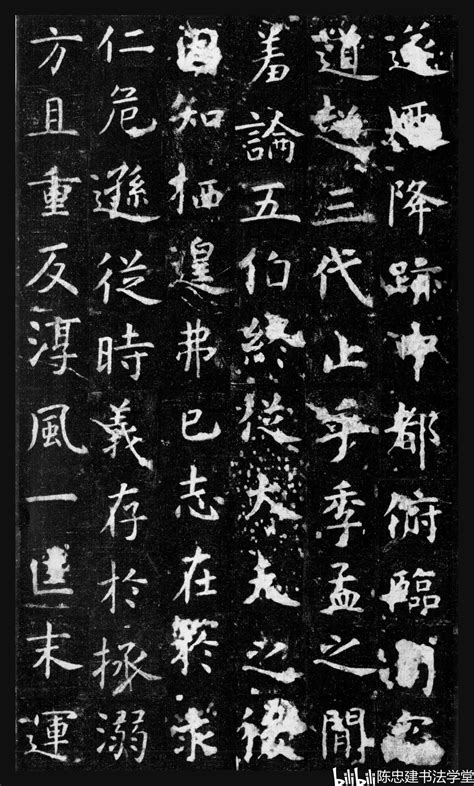 遂迺降跡中都俯臨司寇
道超三代止乎季孟之間
羞論五伯終從大夫之後
固知栖遑弗已志在於求
仁危遜從時義存於拯溺
方且重反淳風一匡末運
bilibili 陈忠建书法学堂